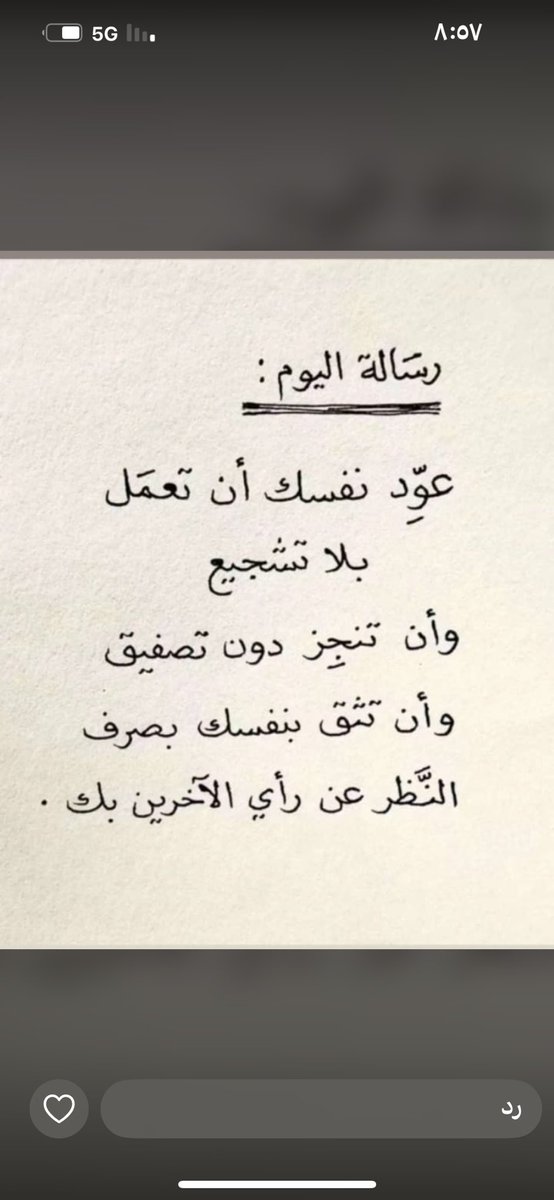 ٨:٥٧
5G
رسَالة اليوم :
عوِّد نفسك أن تعمَل
بلا تشجيع
وأن تنجِز دون تصفيق
وأن تثق بنفسك بصرف
النَّظر عن رأي الآخرين بك .
رد